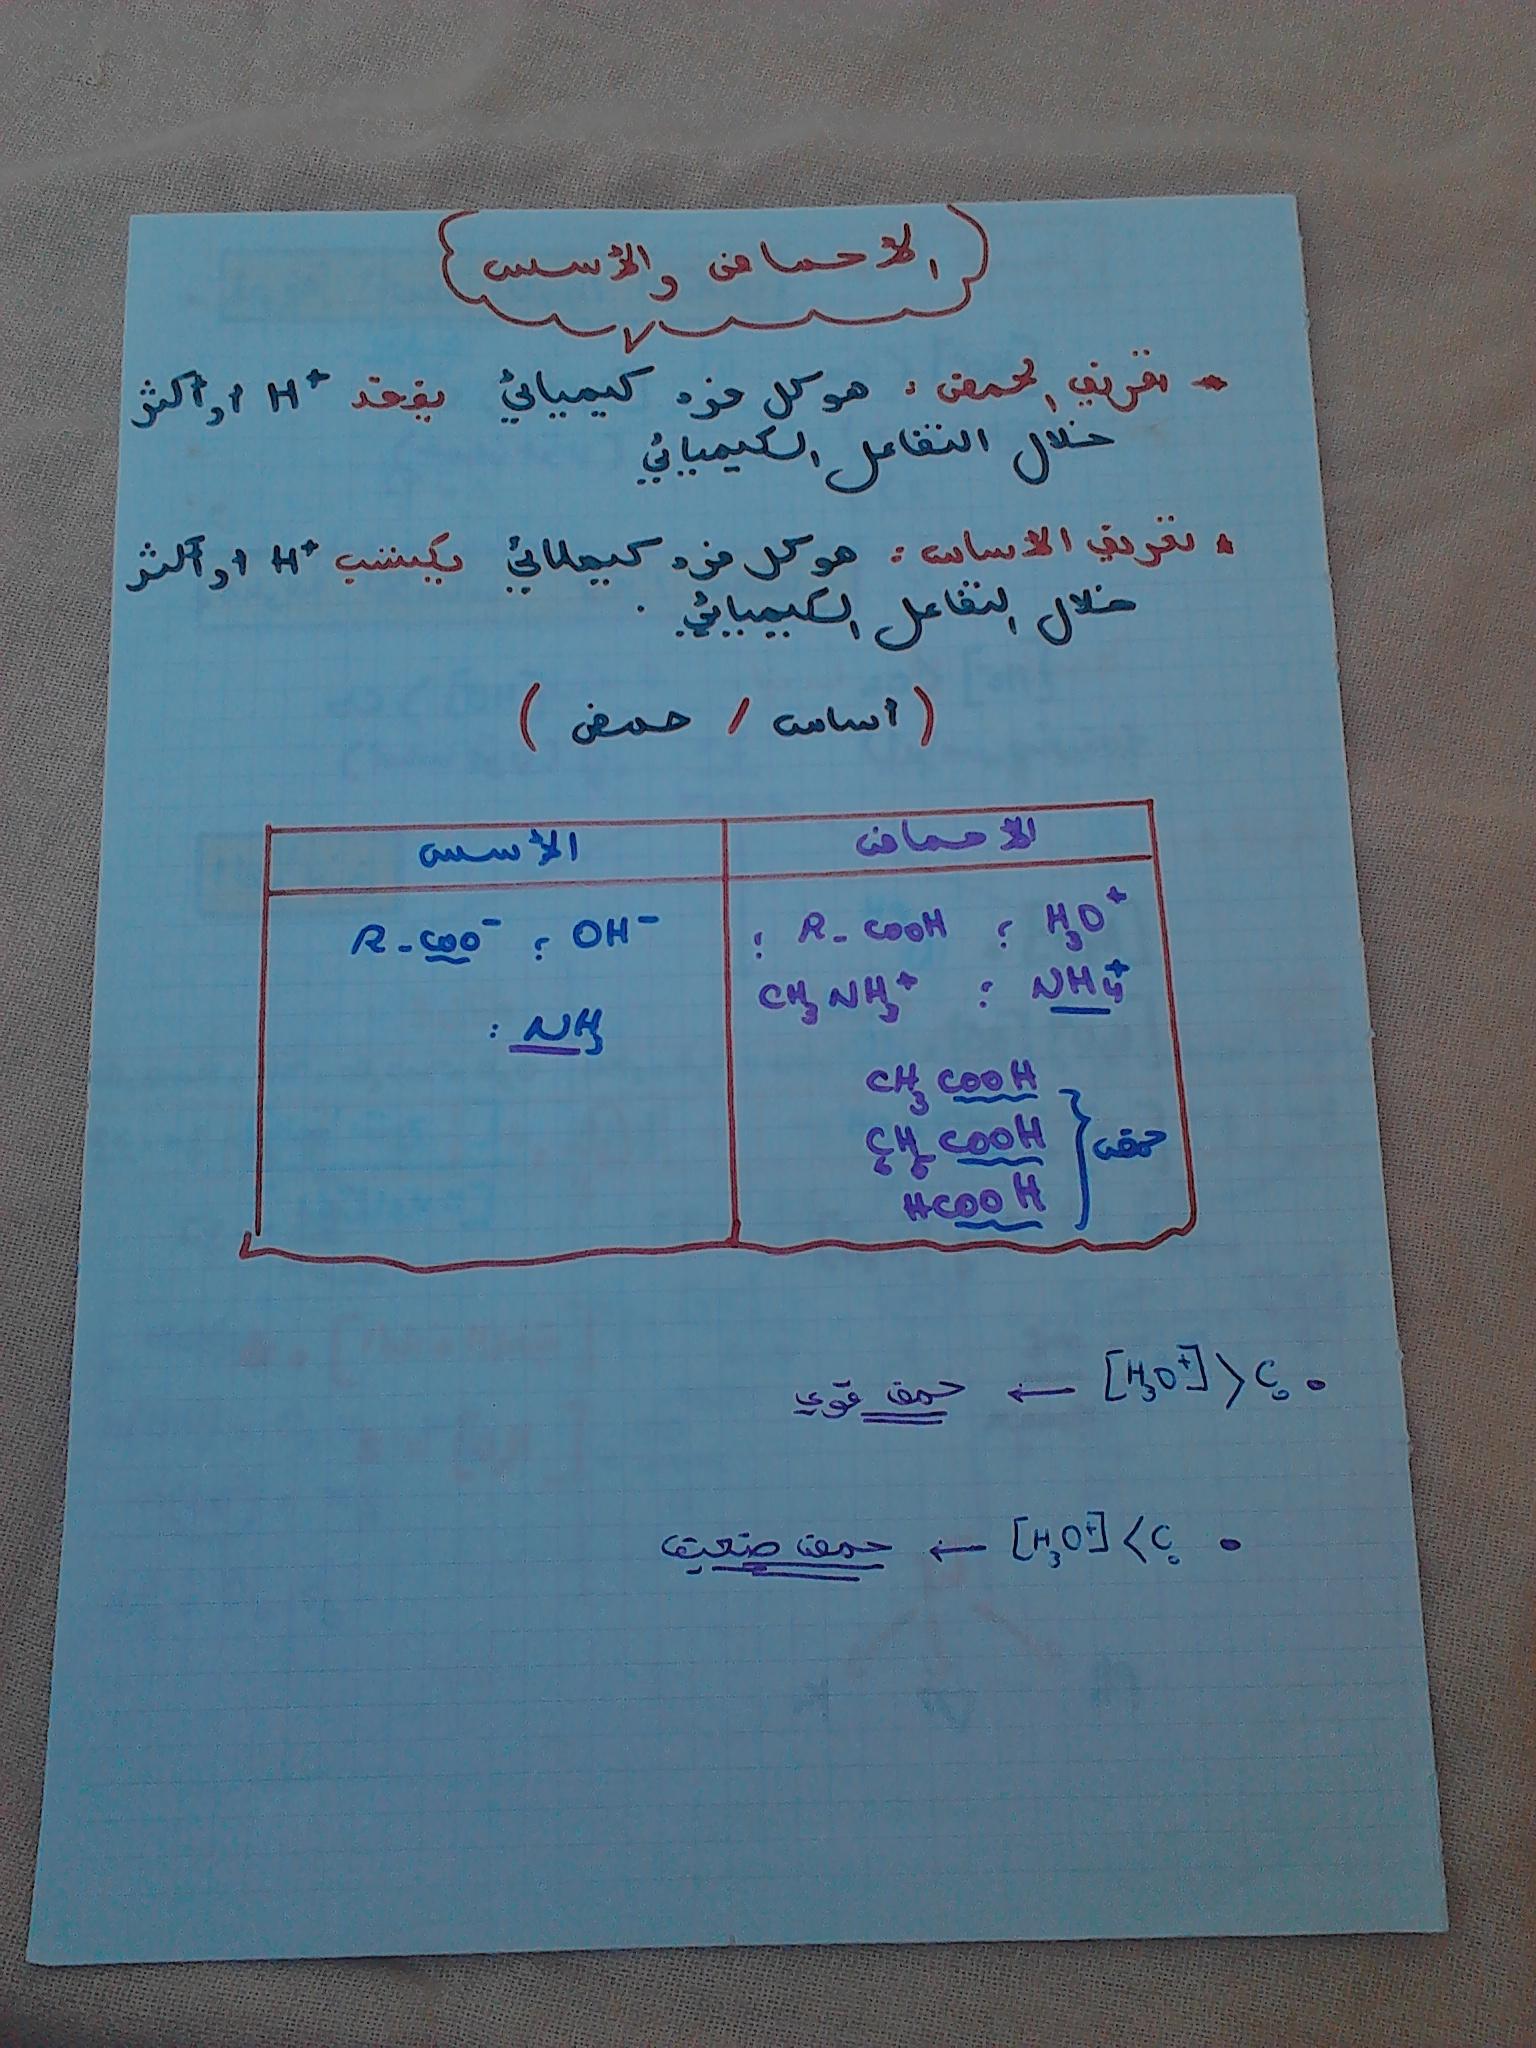 الأحماض والأسس
* تعريف الحمض : هو كل فرد كيميائي يفقد H⁺ أو أكثر
خلال التفاعل الكيميائي
* تعريف الأساس : هو كل فرد كيميائي يكتسب H⁺ أو أكثر
خلال التفاعل الكيميائي .
( أساس / حمض )
الأحماض
الأسس
H₃O⁺ ; R-COOH ;
NH₄⁺ ; CH₃NH₃⁺
CH₃COOH
C₆H₆COOH
HCOOH
حمض
OH⁻ ; R-COO⁻
NH₃ :
• [H₃O⁺] > C₀ ← حمض قوي
• [H₃O⁺] < C₀ ← حمض ضعيف